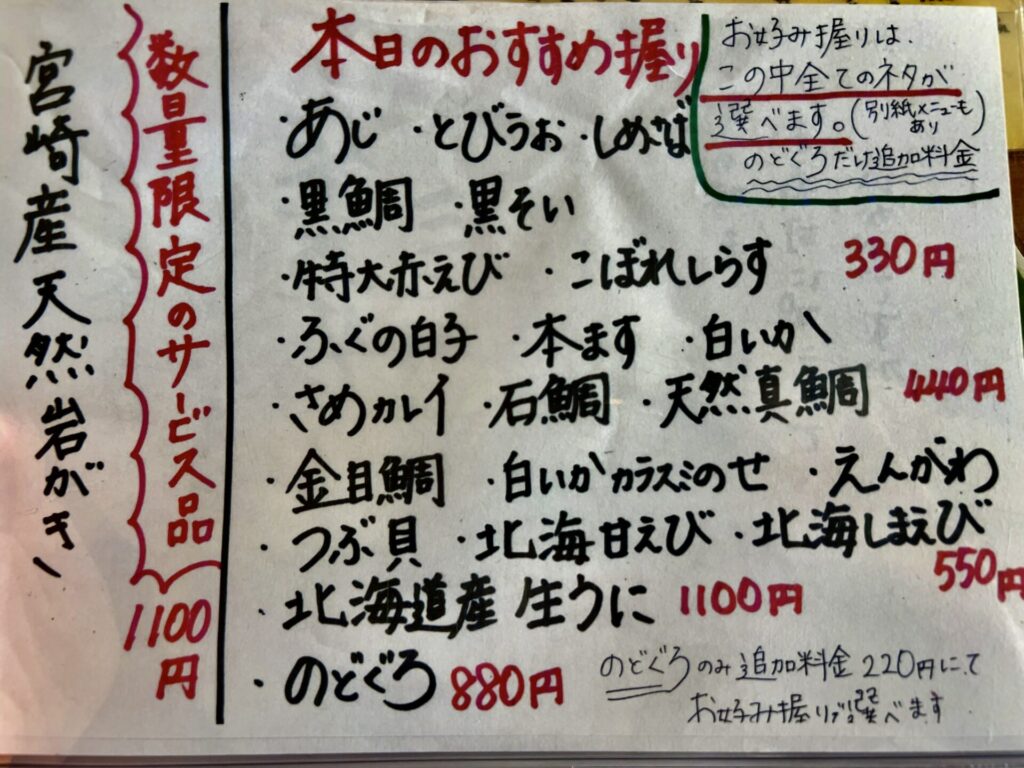 本日のおすすめ握り
お好み握りは、
この中全てのネタが
選べます。(別紙メニューもあり)
のどぐろだけ追加料金
・あじ ・とびうお ・しめさば
・黒鯛 ・黒そい
・特大赤えび ・こぼれしらす 330円
・ふぐの白子 ・本ます ・白いか
・さめカレイ ・石鯛 ・天然真鯛 440円
・金目鯛 ・白いかカラスミのせ ・えんがわ
・つぶ貝 ・北海甘えび ・北海しまえび
550円
・北海道産 生うに 1100円
・のどぐろ 880円
のどぐろのみ追加料金220円にて
お好み握りで選べます
数量限定のサービス品
1100円
宮崎産天然岩がき